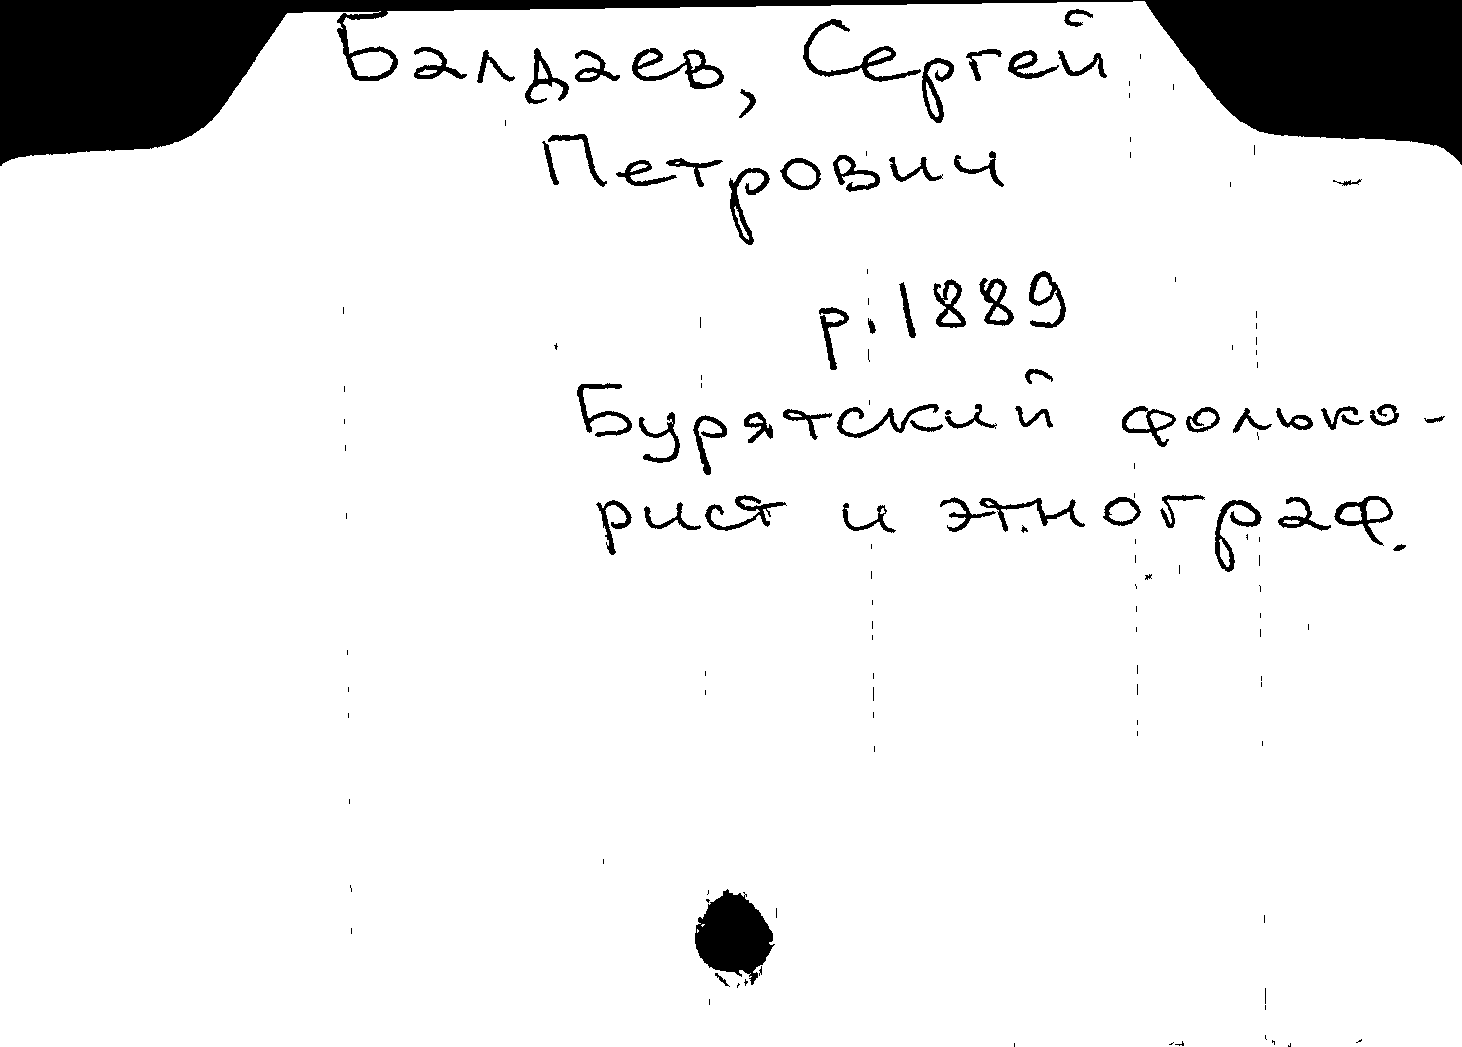 Балдаев, Сергей
Петрович
р. 1889
Бурятский фолько-
рист и этнограф.